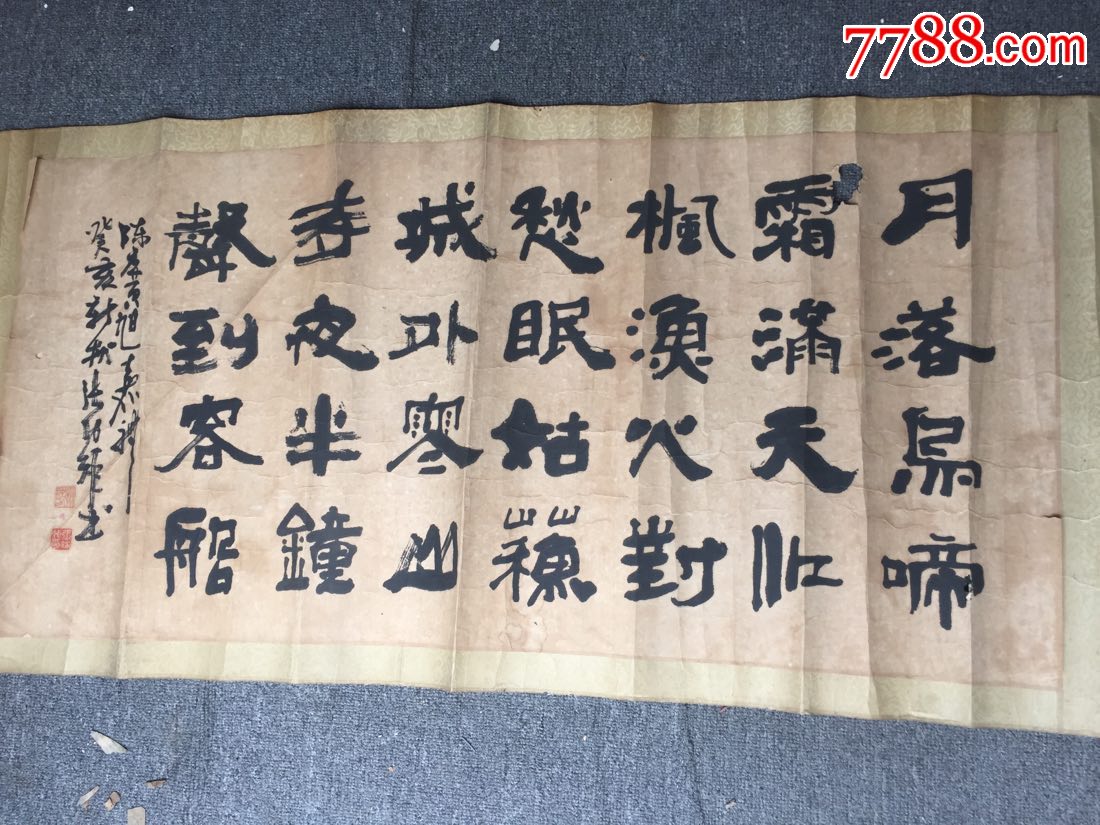 7788.com
月落烏啼
霜滿天江
楓漁火對
愁眠姑蘓
城外寒山
寺夜半鐘
聲到客船
癸亥新秋